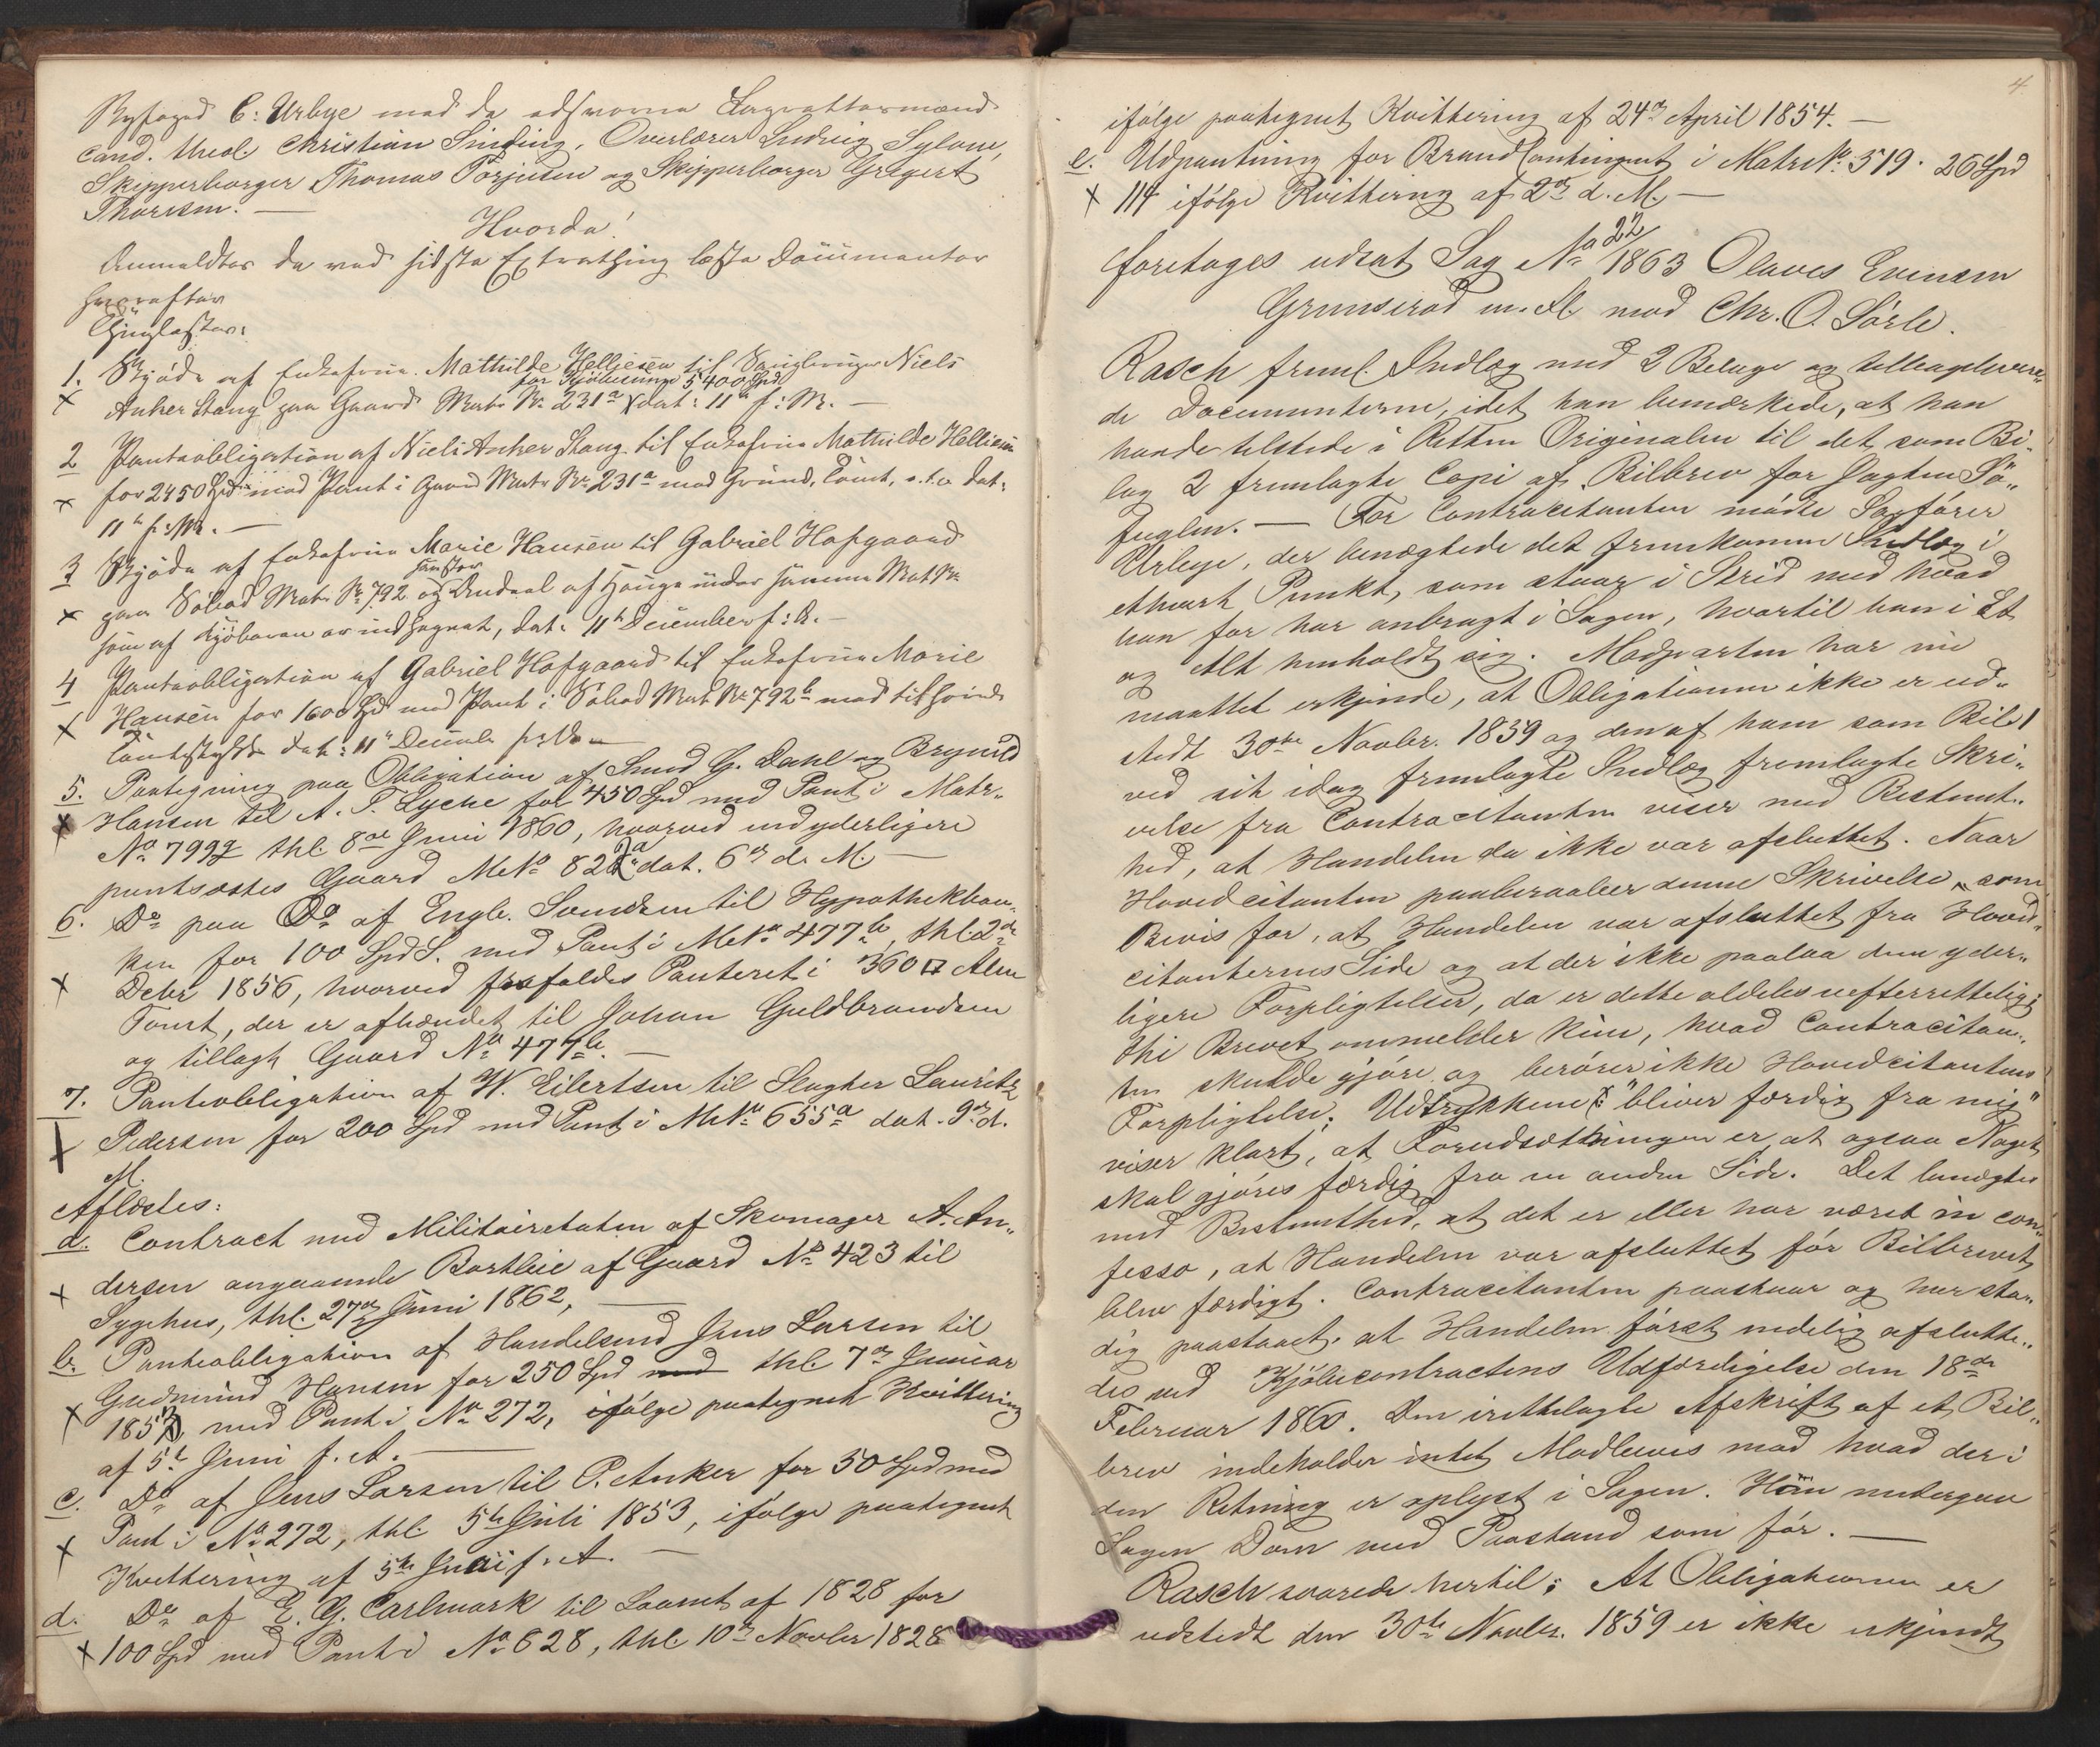 Byfoged C: Urbye med de edsvorne Lagrettesmænd
cand. theol. Christian Sinding, Overlærer Ludvig Sylow,
Skipperborger Thomas Torjusen og Skipperborger Gregert
Thoresen. —
Hvorda!
Anmeldtes de ved sidste Extrathing læste Documenter
hvorefter
Thinglæstes:
1. Skjøde af Enkefrue Mathilde Helliesen til Niels
for Kjøbesum 5400 Spd
x Anker Stang paa Gaard Matr No 231a dat: 11te f: M. —
2 Panteobligation af Niels Anker Stang til Enkefrue Mathilde Helliesen
x for 2450 Spd med Pant i Gaard Matr No 231a med Grund, Tomt, dat:
11te f: M. —
3 Skjøde af Enkefrue Marie Hansen til Gabriel Hofgaard
x paa Søbod Matr No 792 og Andeel af Hauge under samme Mat No
som af Kjøberen er indhegnet, dat: 11te December f: A. —
4 Panteobligation af Gabriel Hofgaard til Enkefrue Marie
x Hansen for 1600 Spd med Pant i Søbod Mat No 792b med tilhørende
Tomtestykke dat: 11te Decembr f: A. —
5. Paategning paa Obligation af Knud G. Dahl og Brynild
x Hansen til A. T. Lycke for 450 Spd med Pant i Matr.
No 799g thl. 8de Juni 1860, hvorved end yderligere
pantsættes Gaard M No 82 a dat. 6te d. M. —
6. Do paa Do af Engb. Svendsen til Hypothekban-
ken for 100 Spd S. med Pant i M No 477b, thl. 2de
x Debr 1856, hvorved frafaldes Panteret i 360 □ Alen
Tomt, der er afhændet til Johan Guldbrandsen
og tillagt Gaard No 477b. —
7. Panteobligation af W. Eilertsen til Slagter Lauritz
x Pedersen for 200 Spd med Pant i M No 655a dat. 9de d.
M.
Aflæstes:
a. Contract med Militairetaten af Skomager A. An-
x dersen angaaende Bortleie af Gaard No 423 til
Sygehus, thl. 27de Juni 1862, —
b. Panteobligation af Handelsmd Jens Larsen til
Gudmund Hansen for 250 Spd med thl. 7de Januar
x 1857, med Pant i No 272, ifølge paategnet Kvittering
af 5te Juni f. A. —
c. Do af Jens Larsen til P. Anker for 50 Spd med
x Pant i No 272, thl. 5te Juli 1853, ifølge paategnet
Kvittering af 5te Juni f. A. —
d. Do af E. G. Carlmark til Laanet af 1828 for
x 100 Spd med Pant i No 628, thl. 10de Novbr 1828
4
ifølge paategnet Kvittering af 24de April 1854. —
e. Udpantning for Brandcontingent i Matr No. 519. 26 Spd
x 114 ifølge Kvittering af 2de d. M. —
Foretoges udsat Sag No 22/1863 Olaves Evensen
Grunserød m. Fl. mod Chr. O. Sørle.
Rasch freml. Indlæg med 2 Bilage og tilbageleve re-
de Documenterne, idet han bemærkede, at han
havde tilstede i Retten Originalen til det som Bi-
lag 2 fremlagte Copi af Bilbrev for Jagten Sø-
fuglen. — For Contracitanten mødte Sagfører
Urbye, der benægtede det fremkomne Indlæg i
ethvert Punkt, som staar i Strid med hvad
han før har anbragt i Sagen, hvortil han i Et
og Alt henholdt sig. Modparten har nu
maattet erkjende, at Obligationen ikke er ud-
stedt 30te Novbr. 1859 og den af ham som Bil. 1
ved sit idag fremlagte Indlæg fremlagte Skri-
velse fra Contracitanten viser med Bestemt-
hed, at Handelen da ikke var afsluttet. Naar
Hovedcitanten paaberaaber denne Skrivelse som
Bevis for, at Handelen var afsluttet fra Hoved-
citanternes Side og at der ikke paalaa dem yder-
ligere Forpligtelser, da er dette aldeles uefterretteligt;
thi Brevet ommelder kun, hvad Contracitan-
ten skulde gjøre og berører ikke Hovedcitantens
Forpligtelse; Udtrykkene: "bliver færdig fra mig"
viser klart, at Forudsætningen er, at ogsaa Noget
skal gjøres færdig fra en anden Side. Det benægtes
med Bestemthed, at det er eller har været in con-
fesso, at Handelen var afsluttet før Bilbrevet
blev færdigt. Contracitanten paastaar og har sta-
dig paastaaet, at Handelen først endelig afslutte-
des ved Kjøbecontractens Udfærdigelse den 18de
Februar 1860. Den irettelagte Afskrift af et Bil-
brev indeholder intet Modbevis mod hvad der i
den Retning er oplyst i Sagen. Han undergav
Sagen Dom med Paastand som før. —
Rasch svarede hertil: At Obligationen er
udstedt den 30te Novbr. 1859 er ikke erkjendt